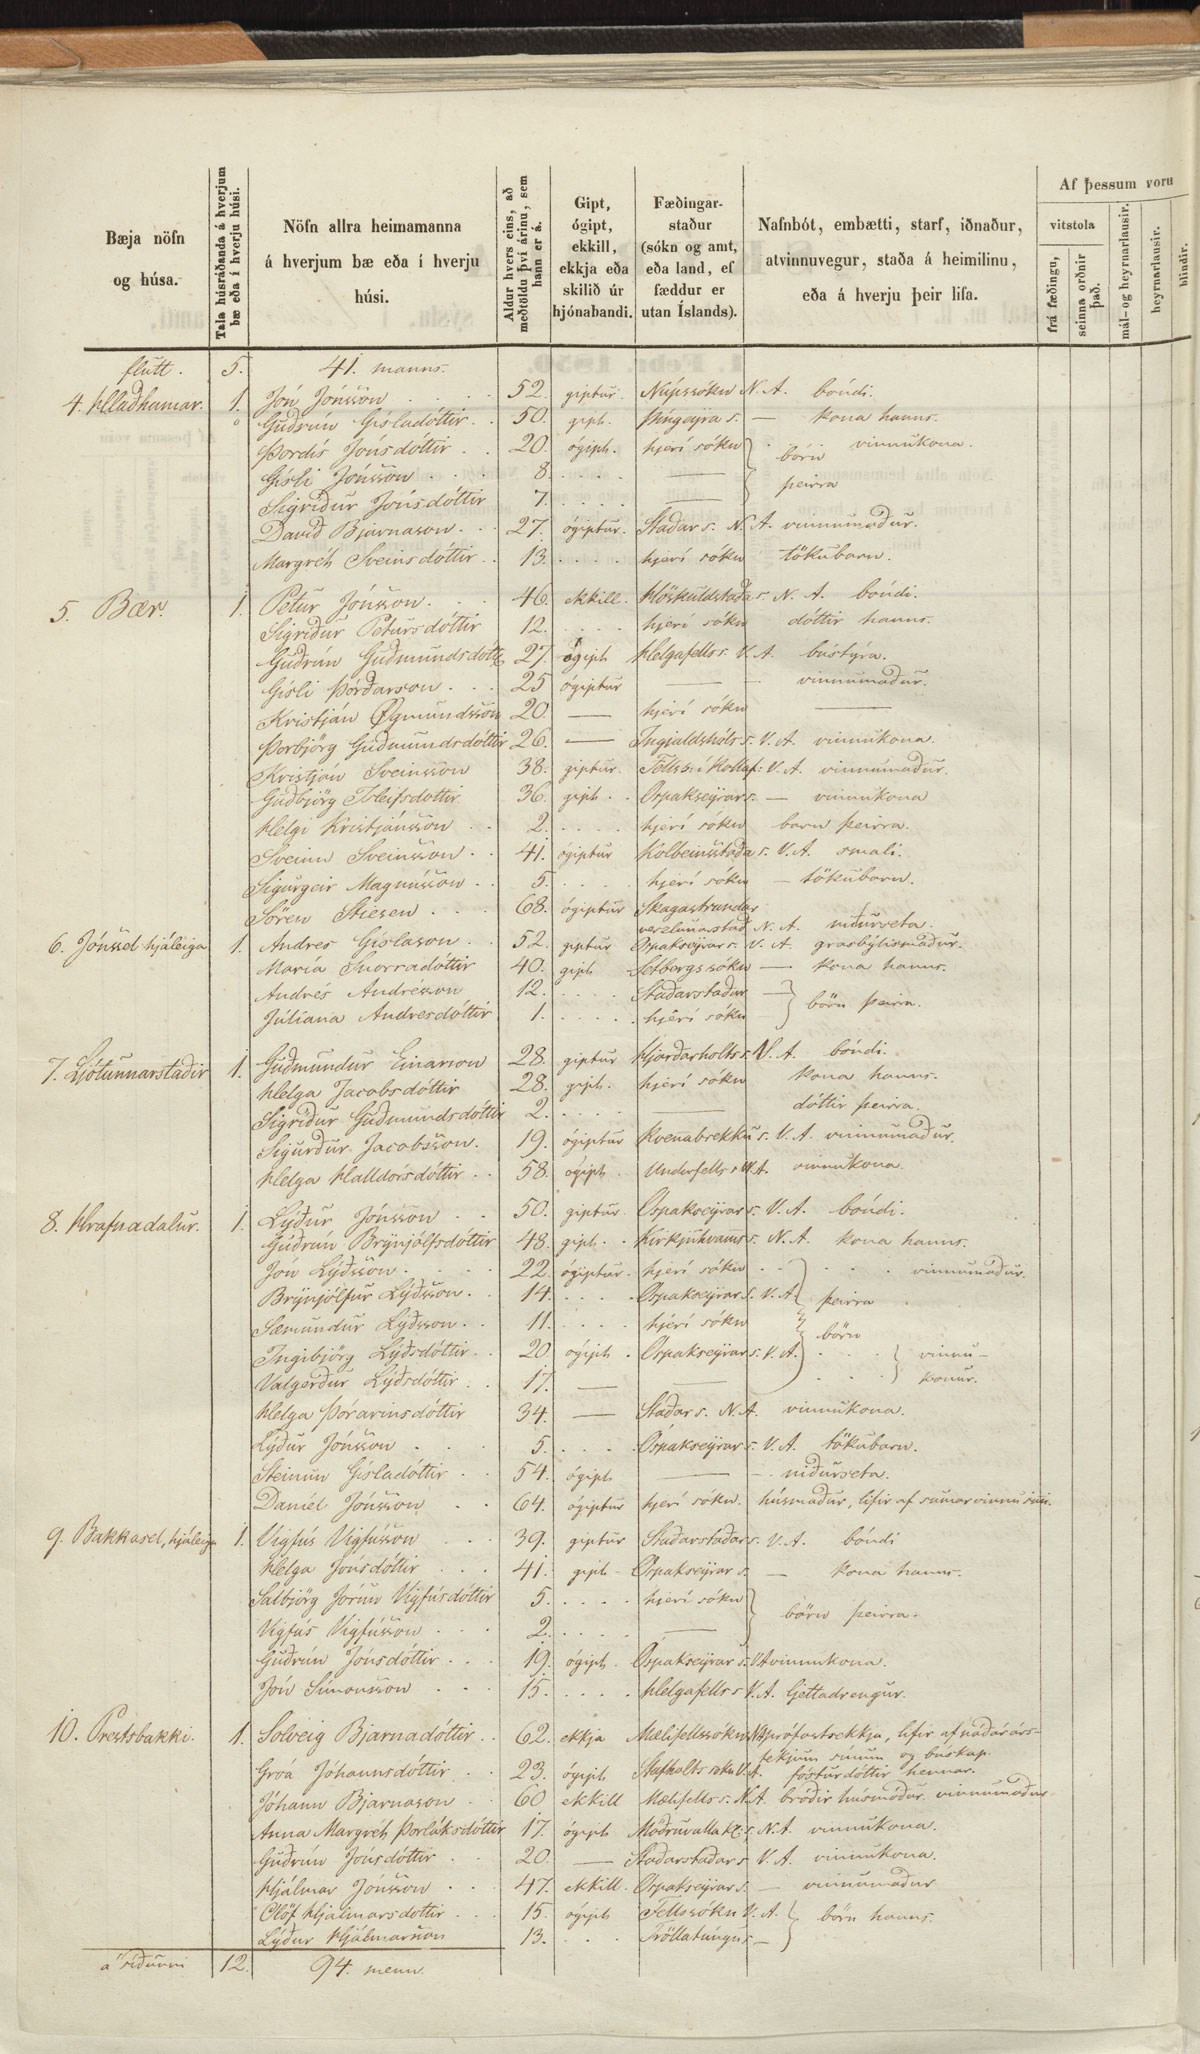 Bæja nöfn og húsa.
Tala húsráðanda á hverjum bæ eða í hverju húsi.
Nöfn allra heimamanna á hverjum bæ eða í hverju húsi.
Aldur hvers eins, að meðtöldu því árinu, sem hann er á.
Gipt, ógipt, ekkill, ekkja eða skilið úr hjónabandi.
Fæðingar-staður (sókn og amt, eða land, ef fæddur er utan Íslands).
Nafnbót, embætti, starf, iðnaður, atvinnuvegur, staða á heimilinu, eða á hverju þeir lifa.
Af þessum voru
vitstola
frá fæðingu,
seinna orðnir það.
mál- og heyrnarlausir.
heyrnarlausir.
blindir.
flutt. 5. 41. manns.
4. Hlaðhamar. 1. Jón Jónsson 52. giptur. Núpssókn N. A. bóndi.
Guðrún Gísladóttir 50. gipt. Þingeyra s. — kona hanns.
Þordís Jónsdóttir 20. ógipt. hjer í sókn } börn þeirra vinnukona.
Gísli Jónsson 8. —
Sigríður Jónsdóttir 7. —
Davíð Bjarnason 27. ógiptur. Staðar s. N. A. vinnumaður.
Margrét Sveinsdóttir 13. hjer í sókn tökubarn.
5. Bær. 1. Petur Jónsson 46. ekkill. Höskuldstaða s. N. A. bóndi.
Sigríður Petursdóttir 12. hjer í sókn dóttir hanns.
Guðrún Guðmundsdóttir 27. ógipt Helgafells s. V. A. bústýra.
Gísli Þórðarson 25 ógiptur — — vinnumaður.
Kristján Ögmundsson 20. — hjer í sókn —
Þorbjörg Guðmundsdóttir 26. — Ingjaldshóls s. V. A. vinnukona.
Kristján Sveinsson 38. giptur. Fells s. í Kollaf: V. A. vinnumaður.
Guðbjörg Ísleifsdottir 36. gipt. Ospakseyrar s. — vinnukona
Helgi Kristjánsson 2. hjer í sókn barn þeirra.
Sveinn Sveinsson 41. ógiptur Kolbeinsstaða s. V. A. smali.
Sigurgeir Magnússon 5. hjer í sókn — tökubarn.
Sören Stiesen 68. ógiptur Skagastrandar verzlunarstað N. A. niðurseta.
6. Jónssel hjáleiga 1. Andres Gíslason 52. giptur Ospakseyrar s. V. A. grasbýlismaður.
María Snorradóttir 40. gipt Setbergssókn — kona hanns.
Andrés Andrésson 12. Staðarstaðar — } börn þeirra.
Júliana Andresdóttir 1. hjer í sókn
7. Ljótunnarstaðir 1. Guðmundur Einarson 28. giptur Hjarðarholts s. V. A. bóndi.
Helga Jacobsdóttir 28. gipt. hjer í sókn kona hanns.
Sigríður Guðmundsdóttir 2. — dóttir þeirra.
Sigurður Jacobsson. 19. ógiptur Kvenabrekku s. V. A. vinnumaður.
Helga Halldórsdóttir 58. ógipt. Undirfells s. N. A. vinnukona.
8. Hrafnadalur. 1. Lýður Jónsson 50. giptur. Ospakseyrar s. V. A. bóndi.
Guðrún Brýnjólfsdóttir 48. gipt. Kirkjuhvamms s. N. A. kona hanns.
Jón Lýðsson 22. ógiptur. hjer í sókn } þeirra börn vinnumaður.
Brýnjólfur Lýðsson. 14. Ospakseyrar s. V. A.
Sæmundur Lýðsson. 11. hjer í sókn
Ingibjörg Lýðsdóttir 20. ógipt. Ospakseyrar s. V. A. } vinnu-
Valgerður Lýðsdóttir 17. — — konur.
Helga Þórarinsdóttir 34. — Staðar s. N. A. vinnukona.
Lýður Jónsson 5. Ospakseyrar s. V. A. tökubarn.
Steinun Gísladóttir 54. ógipt — — niðurseta.
Daníel Jónsson 64. ógiptur hjer í sókn. húsmaður, lifir af sumarvinnu sinni.
9. Bakkasel, hjáleiga 1. Vigfús Vigfússon 39. giptur Staðarstaðar s. V. A. bóndi
Helga Jónsdóttir 41. gipt Ospakseyrar s. — kona hanns.
Salbjörg Jórun Vigfúsdóttir 5. hjer í sókn } börn þeirra.
Vigfús Vigfússon 2. —
Guðrún Jónsdóttir 19. ógipt. Ospakseyrar s. V. A. vinnukona.
Jón Símonsson 15. Helgafells s V. A. ljettadrengur.
10. Prestsbakki. 1. Solveig Bjarnadóttir 62. ekkja Mælifellssókn N. A. prófastsekkja, lifir af náðarárs-
tekjum sínum og búskap.
Gróa Jóhannsdóttir 23. ógipt Stafholts sókn V. A. fósturdóttir hennar.
Jóhann Bjarnason 60 ekkill Mælifells s. N. A. bróðir húsmóður. vinnumaður
Anna Margrét Þorláksdóttir 17. ógipt Möðruvalla kl. s. N. A. vinnukona.
Guðrún Jónsdóttir 20. — Staðarstaðar s V. A. vinnukona.
Hjálmar Jónsson 47. ekkill. Ospakseyrar s. — vinnumaður
Olöf Hjálmarsdottir 15. ógipt Fellssókn V. A. } börn hanns.
Lýður Hjálmarsson 13. Tröllatungu s —
á síðunni 12. 94. menn.